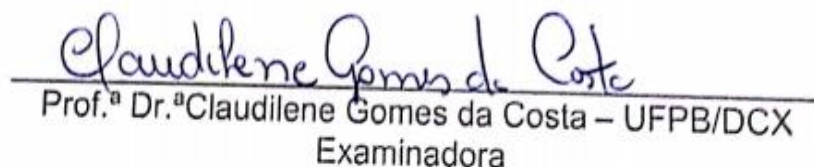 Claudilene Gomes da Costa
Prof.ª Dr.ªClaudilene Gomes da Costa – UFPB/DCX
Examinadora